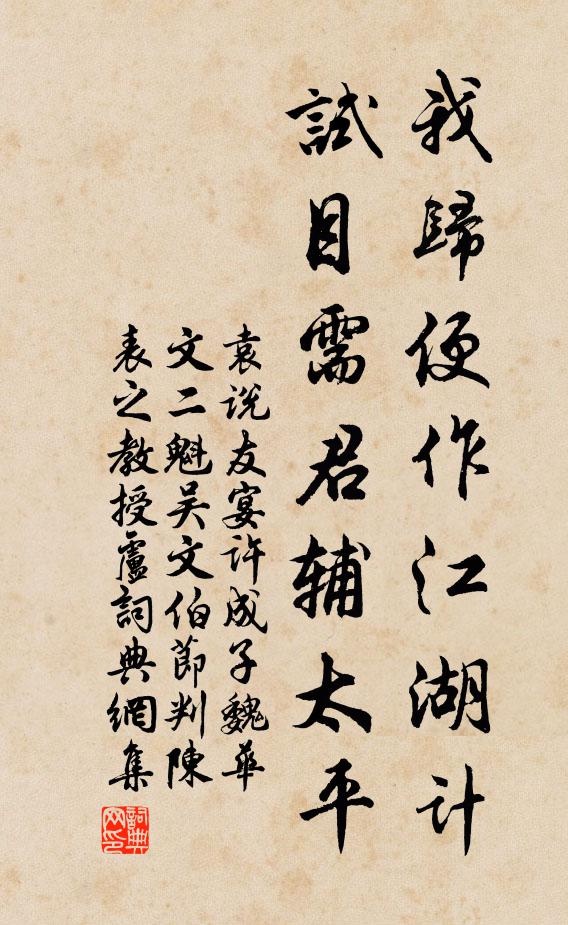 我歸便作江湖計
試目需君輔太平
袁说友宴许成子魏華
文二魁吴文伯節判陳
表之教授盧詞典網集
詞典網印